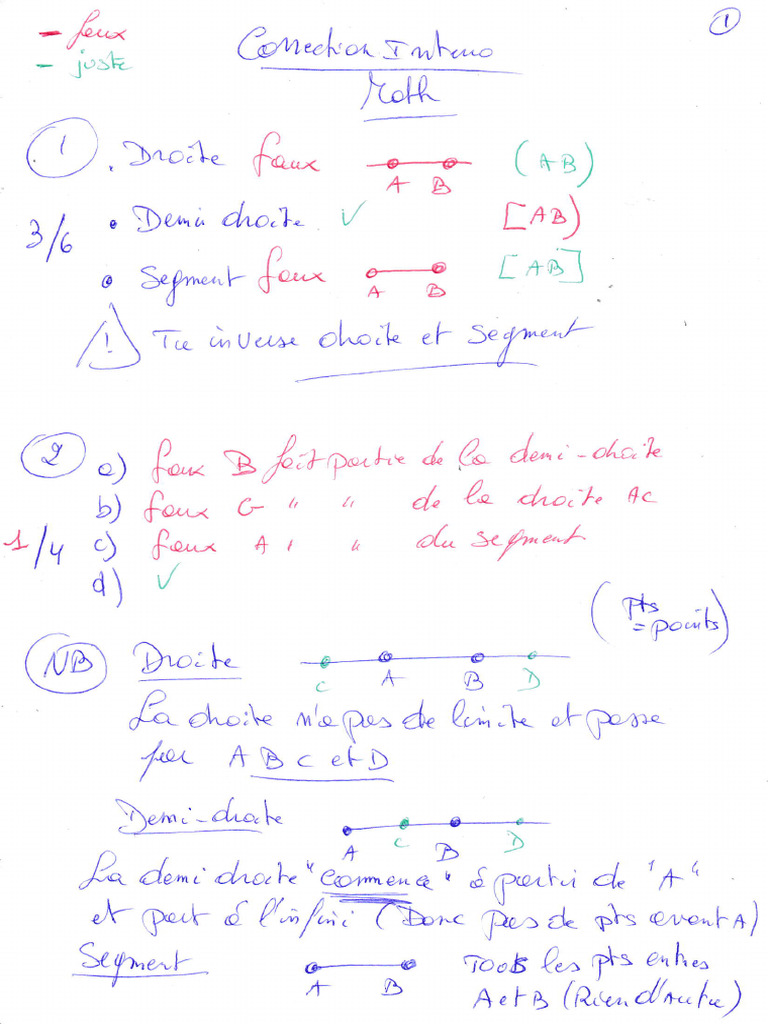 - faux
- juste
①
Correction Interro
Math
① . Droite faux A B (AB)
3/6
• Demi droite ✓ [AB)
• Segment faux A B [AB]
! Tu inverse droite et segment
② a) faux B fait partie de la demi-droite
b) faux G " " de la droite AC
1/4 c) faux A " " du segment
d) ✓
(Pts = points)
NB Droite C A B D
La droite n'a pas de limite et passe
par A B C et D
Demi-droite A C B D
La demi droite "commence" à partir de "A"
et part à l'infini (Donc pas de pts avant A)
Segment A B Tous les pts entres
A et B (Rien d'autre)